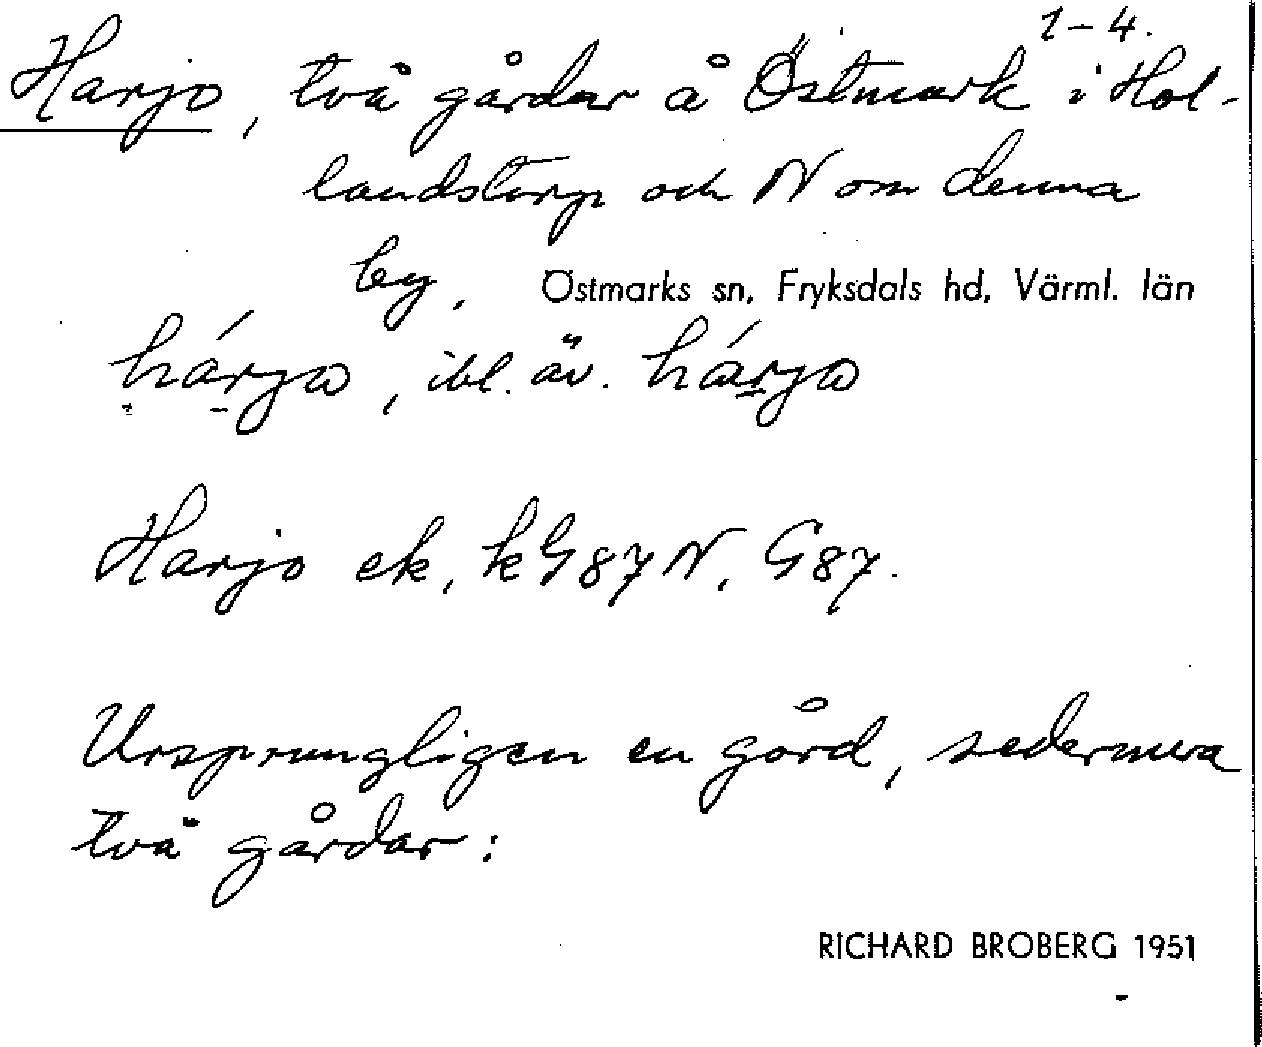 1-4.
Harjo, två gårdar å Östmark i Hol-
landstorp och N om denna
by. Östmarks sn, Fryksdals hd, Värml. län
hárjω, ibl. äv. hárjω
Harjo ek, kG87N, G87.
Ursprungligen en gård, sedermera
två gårdar:
RICHARD BROBERG 1951